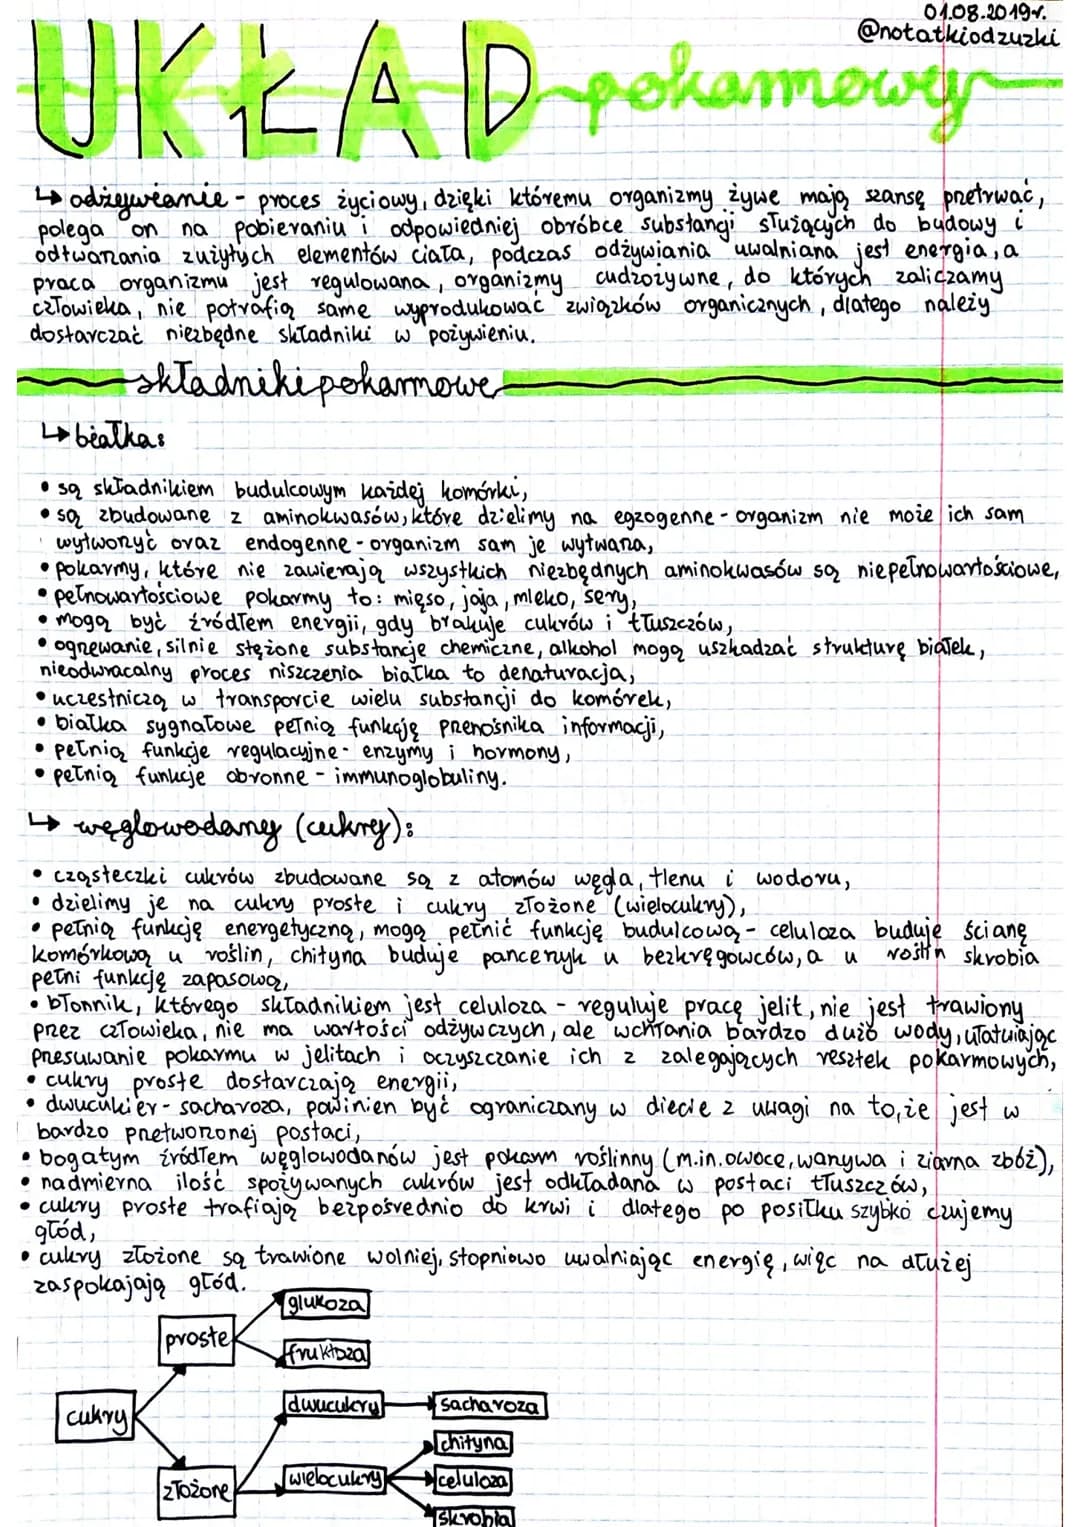 01.08.2019r.
@notatkiodzuzki
UKŁAD pokarmowy
↳ odżywianie - proces życiowy, dzięki któremu organizmy żywe mają szansę przetrwać,
polega on na pobieraniu i odpowiedniej obróbce substancji służących do budowy i
odtwarzania zużytych elementów ciała, podczas odżywiania uwalniana jest energia, a
praca organizmu jest regulowana, organizmy cudzożywne, do których zaliczamy
człowieka, nie potrafią same wyprodukować związków organicznych, dlatego należy
dostarczać niezbędne składniki w pożywieniu.
składniki pokarmowe
↳ białka:
• są składnikiem budulcowym każdej komórki,
• są zbudowane z aminokwasów, które dzielimy na egzogenne - organizm nie może ich sam
wytworzyć oraz endogenne - organizm sam je wytwarza,
• pokarmy, które nie zawierają wszystkich niezbędnych aminokwasów są niepełnowartościowe,
• pełnowartościowe pokarmy to: mięso, jaja, mleko, sery,
• mogą być źródłem energii, gdy brakuje cukrów i tłuszczów,
• ogrzewanie, silnie stężone substancje chemiczne, alkohol mogą uszkadzać strukturę białek,
nieodwracalny proces niszczenia białka to denaturacja,
• uczestniczą w transporcie wielu substancji do komórek,
• białka sygnałowe pełnią funkcję przenośnika informacji,
• pełnią funkcje regulacyjne - enzymy i hormony,
• pełnią funkcje obronne - immunoglobuliny.
↳ węglowodany (cukry):
• cząsteczki cukrów zbudowane są z atomów węgla, tlenu i wodoru,
• dzielimy je na cukry proste i cukry złożone (wielocukry),
• pełnią funkcję energetyczną, mogą pełnić funkcję budulcową - celuloza buduje ścianę
komórkową u roślin, chityna buduje pancerzyk u bezkręgowców, a u roślin skrobia
pełni funkcję zapasową,
• błonnik, którego składnikiem jest celuloza - reguluje pracę jelit, nie jest trawiony
przez człowieka, nie ma wartości odżywczych, ale wchłania bardzo dużo wody, ułatwiając
przesuwanie pokarmu w jelitach i oczyszczanie ich z zalegających resztek pokarmowych,
• cukry proste dostarczają energii,
• dwucukier - sacharoza, powinien być ograniczany w diecie z uwagi na to, że jest w
bardzo przetworzonej postaci,
• bogatym źródłem węglowodanów jest pokarm roślinny (m.in. owoce, warzywa i ziarna zbóż),
• nadmierna ilość spożywanych cukrów jest odkładana w postaci tłuszczów,
• cukry proste trafiają bezpośrednio do krwi i dlatego po posiłku szybko czujemy
głód,
• cukry złożone są trawione wolniej, stopniowo uwalniając energię, więc na dłużej
zaspokajają głód.
glukoza
proste
fruktoza
dwucukry
sacharoza
cukry
chityna
wielocukry
celuloza
złożone
skrobia